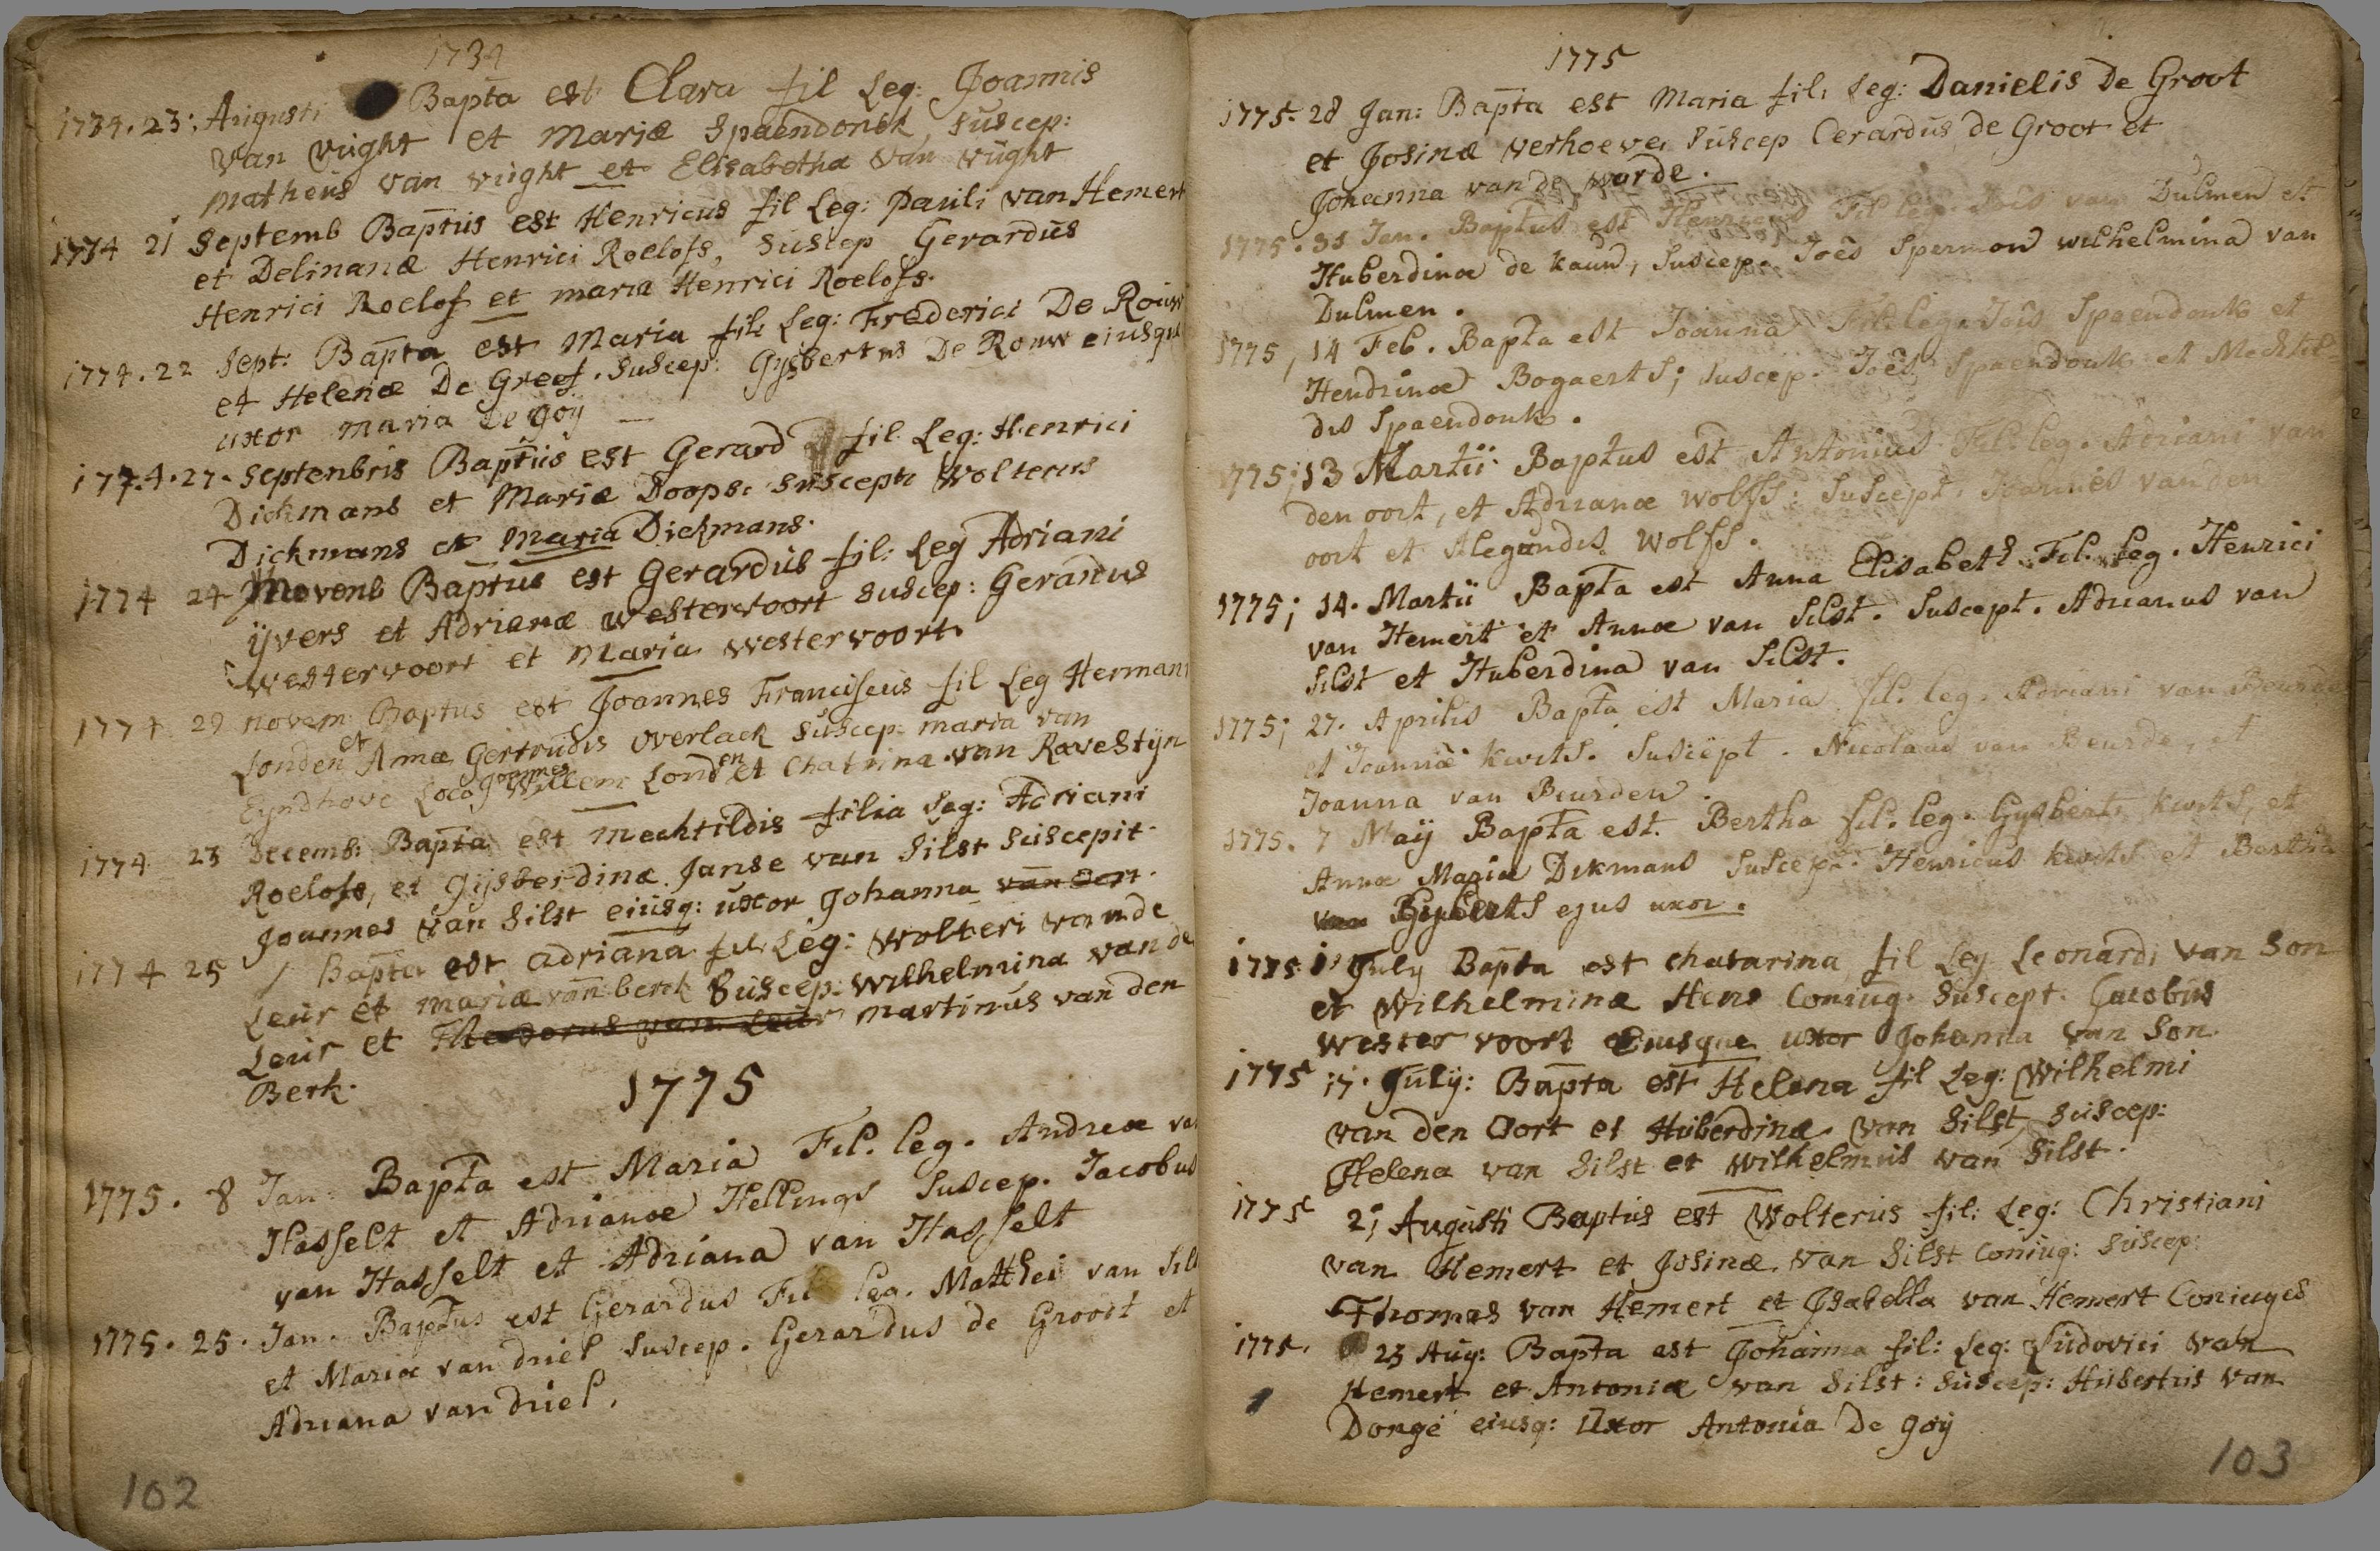 1734
1734. 23: Augusti Bapta est Clara fil Leg: Joannis
van vught et Mariæ Spaendonck, suscep:
Matheus van vught et Elisabetha van vught
1734 21 Septemb Baptus est Henricus fil Leg: Pauli van Hemert
et Delinanæ Henrici Roelofs, Suscep Gerardus
Henrici Roelof et maria Henrici Roelofs.
1774. 22 Sept: Bapta est Maria fil: Leg: Frederici De Rouw
et Helenæ De Greef. Suscep: Gijsbertus De Rouw eiusque
uxor Maria De Goÿ
1774. 27. Septenbris Baptus est Gerard fil Leg: Henrici
Dickmans et Mariæ Doops: Suscept: Wolterus
Dickmans et Maria Dickmans.
1774 24 Novenb Baptus est Gerardus fil: Leg Adriani
ÿvers et Adrianæ Westervoort Suscep: Gerardus
Westervoort et Maria Westervoort.
1774 29 Novem: Baptus est Joannes Franciscus fil Leg Hermani
Londen et Annæ Gertrudis Overlack Suscep: maria van
Eyndhove Loco Joannes Willem Londen et Chatrina van Ravestijn
1774 23 Decemb: Bapta est Mechtildis filia Leg: Adriani
Roelofs, et Gijsberdinæ Janse van Silst Suscepit
Joannes van Silst eiusq: uxor Johanna van Oort.
1774 25 / Bapta est Adriana fil: Leg: Wolteri vande
Leur et Mariæ van berck Suscep: Wilhelmina vande
Leur et Theodorus van Leur Martinus van den
Berk.
1775
1775. 8 Jan: Bapta est Maria Fil. leg. Andreæ van
Hasselt et Adrianæ Hellings Suscep. Jacobus
van Hasselt et Adriana van Hasselt
1775. 25. Jan. Baptus est Gerardus Fil leg. Matthei van Silst
et Mariæ van driel Suscep. Gerardus de Groot et
Adriana van driel.
102
1775
1775. 28 Jan: Bapta est Maria fil: Leg: Danielis De Groot
et Josinæ Verhoeve, Suscep Gerardus de Groot et
Johanna van de Worde.
1775. 31 Jan. Baptus est Henricus Fil leg. Jois van Dulmen et
Huberdinæ de Kaud, Suscep. Joes Spermon wilhelmina van
Dulmen.
1775, 14 Feb. Bapta est Joanna Fil. leg. Jois Spaendonk et
Hendrinæ Bogaerts; suscep. Joes Spaendonk et Mechtil
dis Spaendonk.
1775; 13 Martii Baptus est Antonius Fil. leg. Adriani van
den oort, et Adrianæ Wolfs: Suscept. Joannes van den
oort et Alegundis Wolfs.
1775; 14. Martii Bapta est Anna Elisabeth Fil. leg. Henrici
van Hemert et Annæ van Silst. Suscept. Adrianus van
Silst et Huberdina van Silst.
1775; 27. Aprilis Bapta est Maria fil. leg. Adriani van Beurde
et Joannæ Kwits. Suscept. Nicolaus van Beurde, et
Joanna van Beurden.
1775. 7 Maÿ Bapta est. Bertha fil. leg. Gysberti Kwits, et
Annæ Mariæ Dikmans Suscept. Henricus Kwits et Bertha
van Gysberts ejus uxor.
1775 1 July Bapta est Chatarina fil Leg Leonardi van Son
et Wilhelminæ Hens Coniug. Suscept. Jacobus
Westervoort Eiusque uxor Johanna van Son.
1775 17. July: Bapta est Helena fil Leg: Wilhelmi
van den Oort et Huberdinæ van Silst, Suscep:
Helena van Silst et Wilhelmus van Silst.
1775 21 Augusti Baptus est Wolterus fil: Leg: Christiani
van Hemert et Josinæ van Silst Coniug: Suscep:
Thomas van Hemert et Isabella van Hemert Coniuges
1775. 23 Aug: Bapta est Johanna fil: Leg: Ludovici van
Hemert et Antoniæ van Silst: Suscep: Hubertus van
Donge eiusq: Uxor Antonia De Goÿ
103